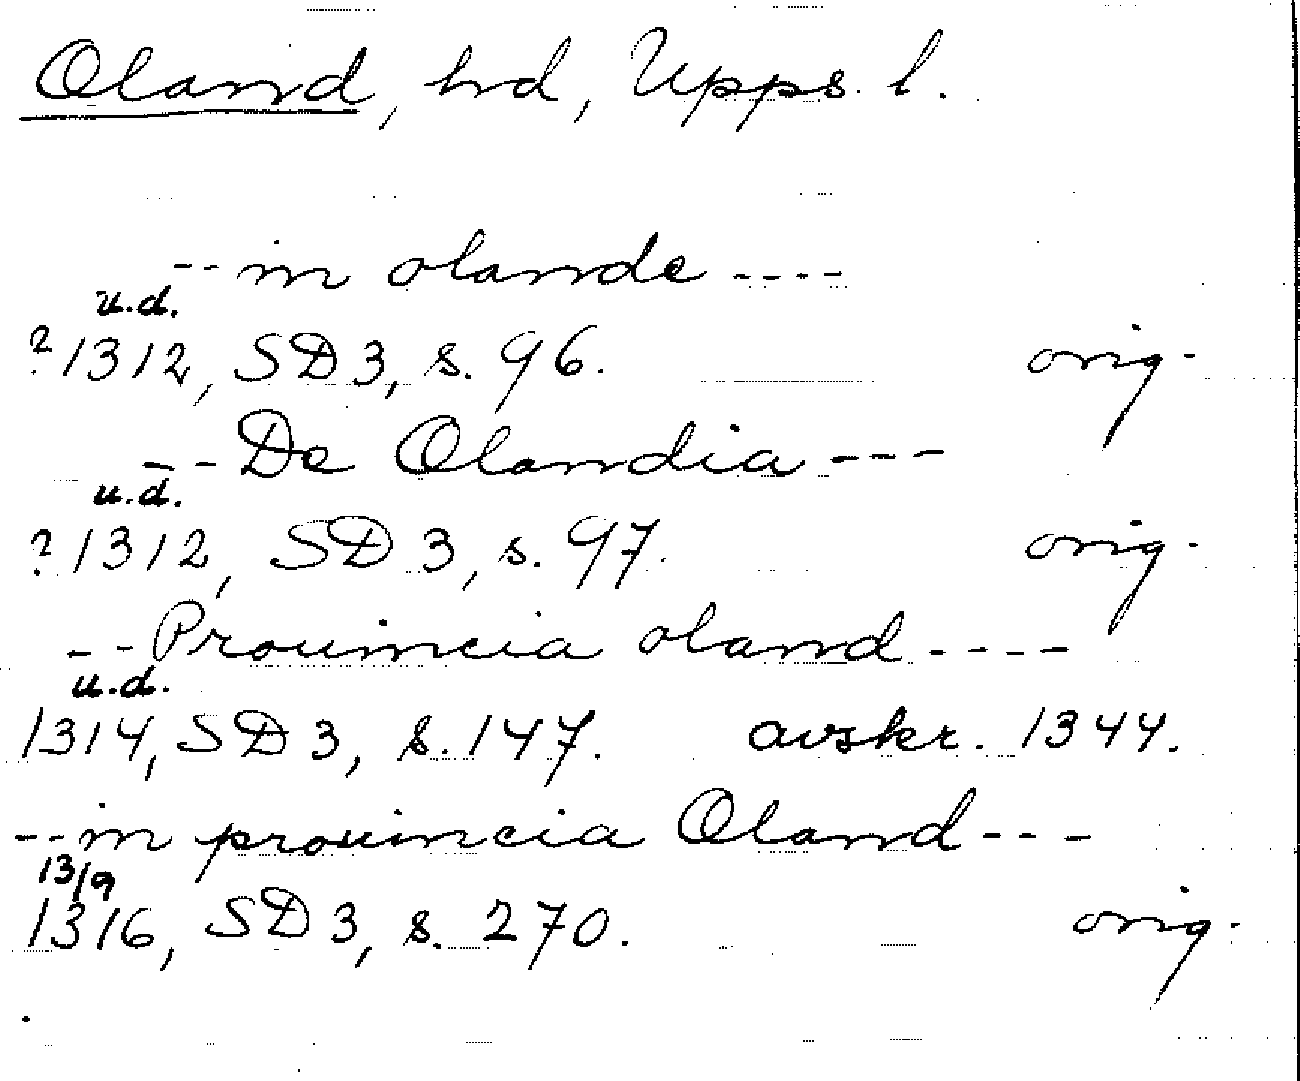 Oland, hd, Upps. l.
-- in olande ----
u.d.
? 1312, SD 3, s. 96. orig.
-- De Olandia ---
u.d.
? 1312, SD 3, s. 97. orig.
-- Prouincia oland ----
u.d.
1314, SD 3, s. 147. avskr. 1344.
-- in prouincia Oland ---
13/9
1316, SD 3, s. 270. orig.